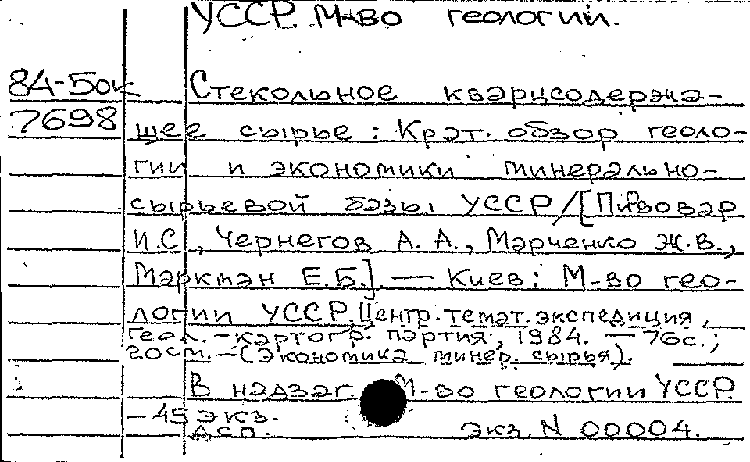 УССР. М-во геологии.
84-5ок Стекольное кварцсодержа-
7698 щее сырье : Крат. обзор геоло-
гии и экономики минерально-
сырьевой базы УССР/[Пивовар
И.С., Чернегов А.А., Марченко Ж.В.,
Маркман Е.Б.]. — Киев : М-во гео-
логии УССР. Центр. темат. экспедиция,
Геол.-картогр. партия, 1984. — 76с.;
20см. — (Экономика минер. сырья).
В надзаг. М-во геологии УССР.
— 45 экз.
ДСП. экз. N 00004.